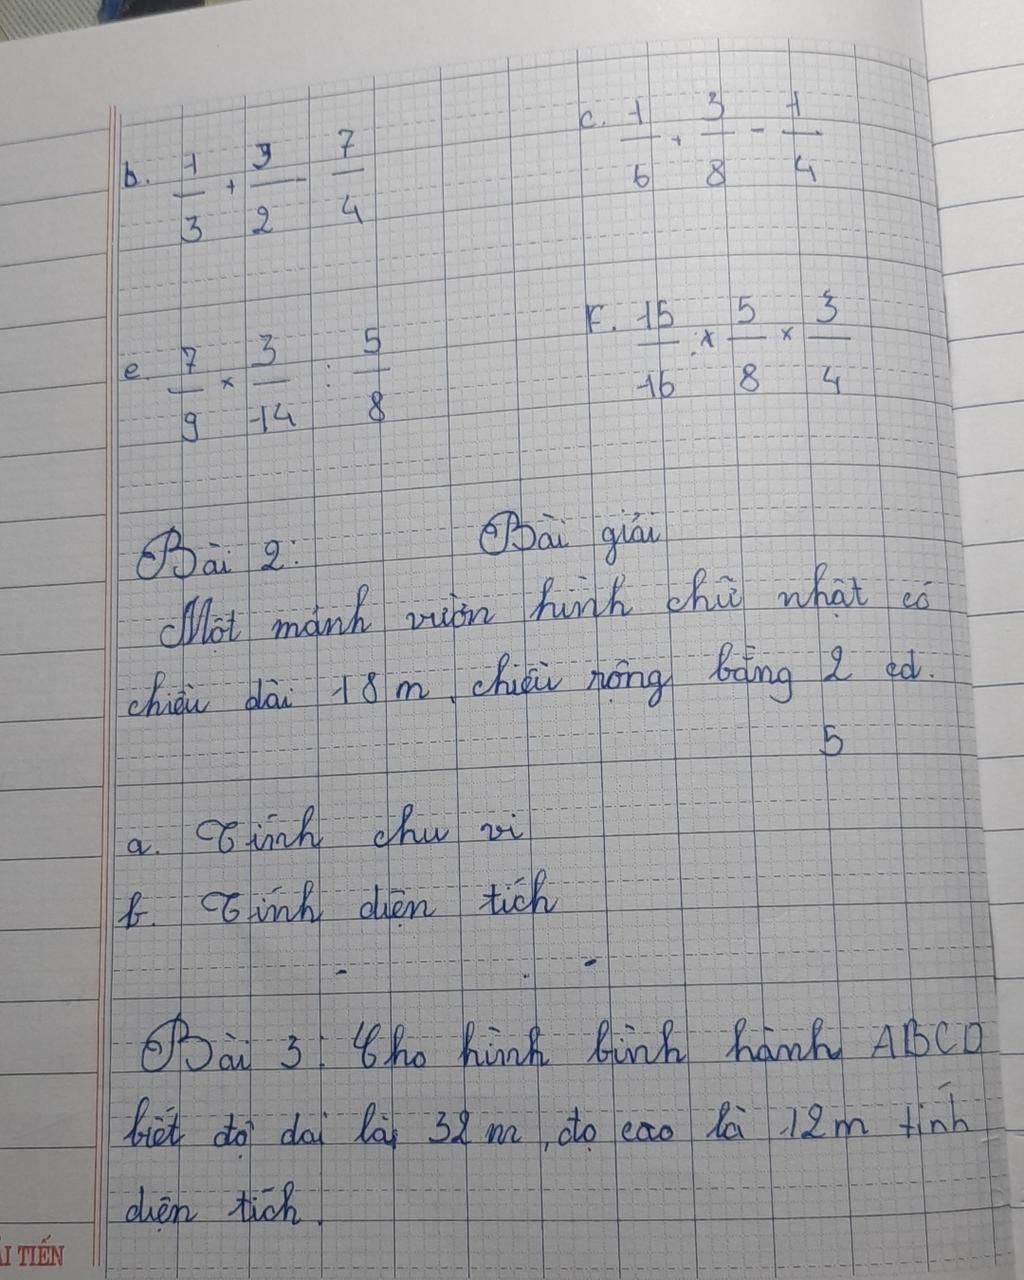 b. 1/3 + 9/2 - 7/4
c. 1/6 + 3/8 - 1/4
e. 7/9 × 3/14 : 5/8
F. 15/16 : × 5/8 × 3/4
Bài 2: Bài giải
Một mảnh vườn hình chữ nhật có
chiều dài 18 m, chiều rộng bằng 2/5 cd.
a. Tính chu vi
b. Tính diện tích
Bài 3: Cho hình bình hành ABCD
biết độ dai là 32 m, độ cao là 12 m tính
diện tích.
ẢI TIẾN